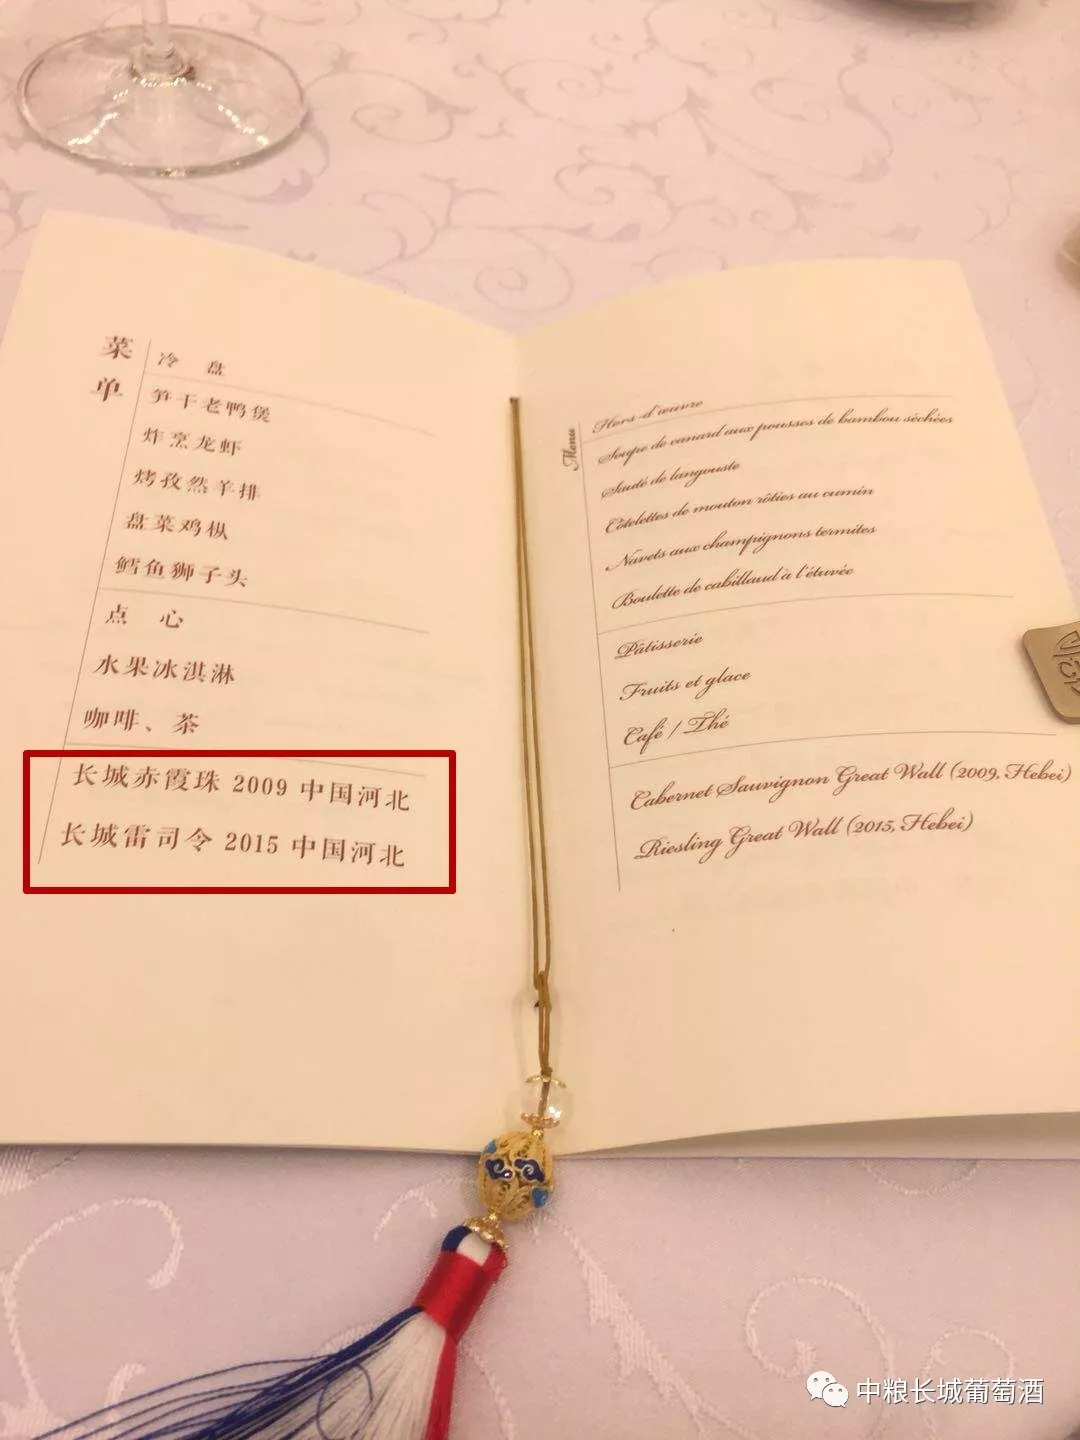 菜单
冷 盘
笋干老鸭煲
炸烹龙虾
烤孜然羊排
盘菜鸡枞
鳕鱼狮子头
点 心
水果冰淇淋
咖啡、茶
长城赤霞珠 2009 中国河北
长城雷司令 2015 中国河北
Menu
Hors-d'œuvre
Soupe de canard aux pousses de bambou séchées
Sauté de langouste
Côtelettes de mouton rôties au cumin
Navets aux champignons termites
Boulette de cabillaud à l'étuvée
Pâtisserie
Fruits et glace
Café / Thé
Cabernet Sauvignon Great Wall (2009, Hebei)
Riesling Great Wall (2015, Hebei)
中粮长城葡萄酒